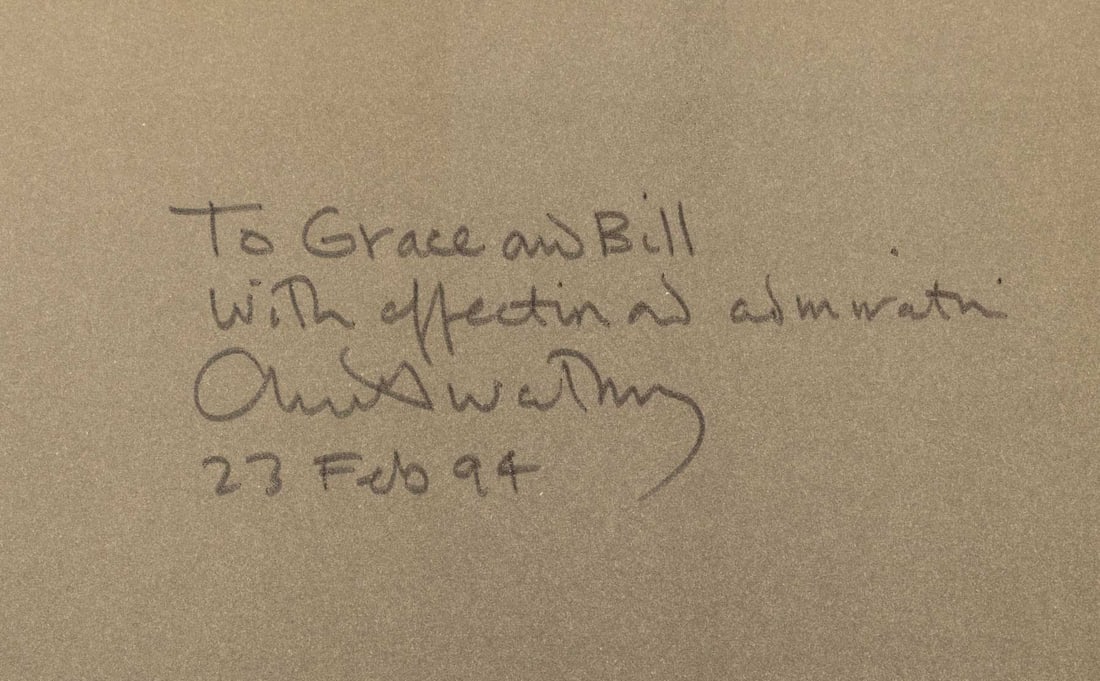 To Grace and Bill
With affection and admiration
23 Feb 94